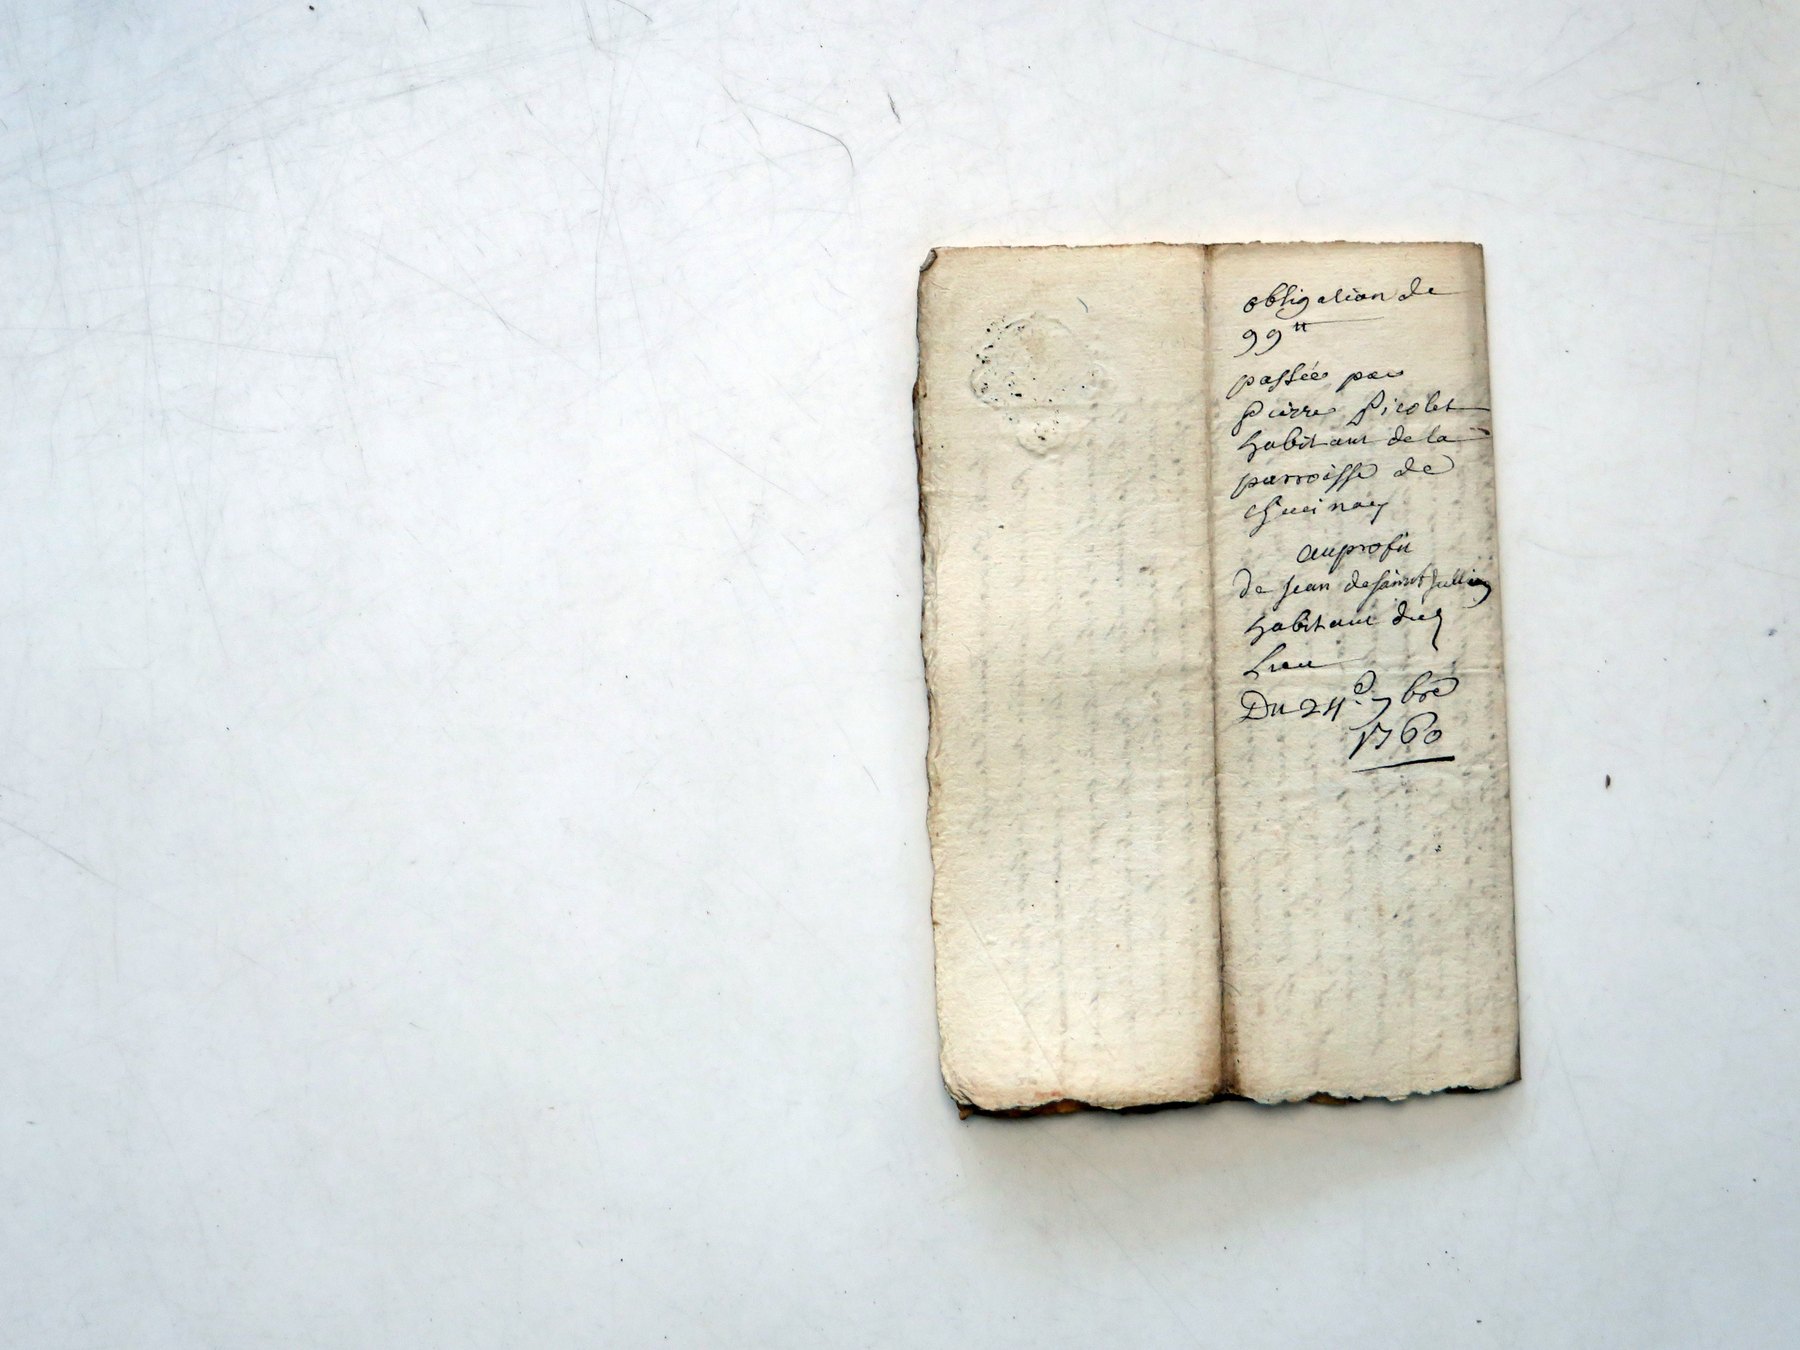 obligation de
99 ₶
passée par
Pierre Picolet
habitant de la
parroisse de
au profit
de Jean de saint Jullien
habitant dud
Lieu
Du 24e 7bre
1760